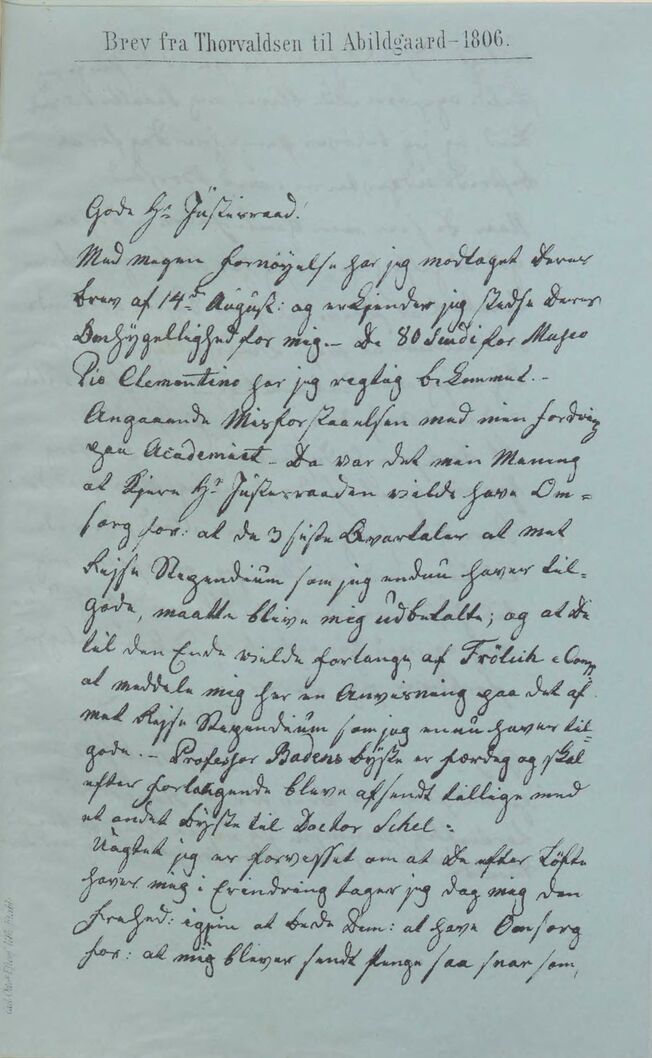 Brev fra Thorvaldsen til Abildgaard-1806.
Gode Hr Justisraad!
Med megen fornöyelse har jeg modtaget Deres
brev af 14de August: og erkjender jeg stedse Deres
Omhÿgellighed for mig.- De 80 Scudi for Museo
Pio Clementino har jeg regtig bekommet.-
Angaaende Misforstaaelsen med min fordring
paa Academiet - Da var det min Mening
at Kjere Hr Justisraaden vielde have Om=
sorg for: at de 3 siste Qvartaler at met
Rejse Stependium som jeg endnu haver til=
gode, maatte blive mig udbetalte; og at De
til den Ende vielde forlange af Frölich & Comp
at meddele mig her en Anvisning paa det af
met Rejse Stependium som jeg enau haver til=
gode.- Professor Badens bÿste er færdeg og skal
efter forlangende blive afsendt tillige med
et andet bÿste til Doctor Schel=
Uagtet jeg er forvesset om at De efter Löfte
haver mig i Erendring tager jeg dag mig den
frehed: igjen at bede Dem: at have Omsorg
for: at mig bliver sendt Penge saa snar som,